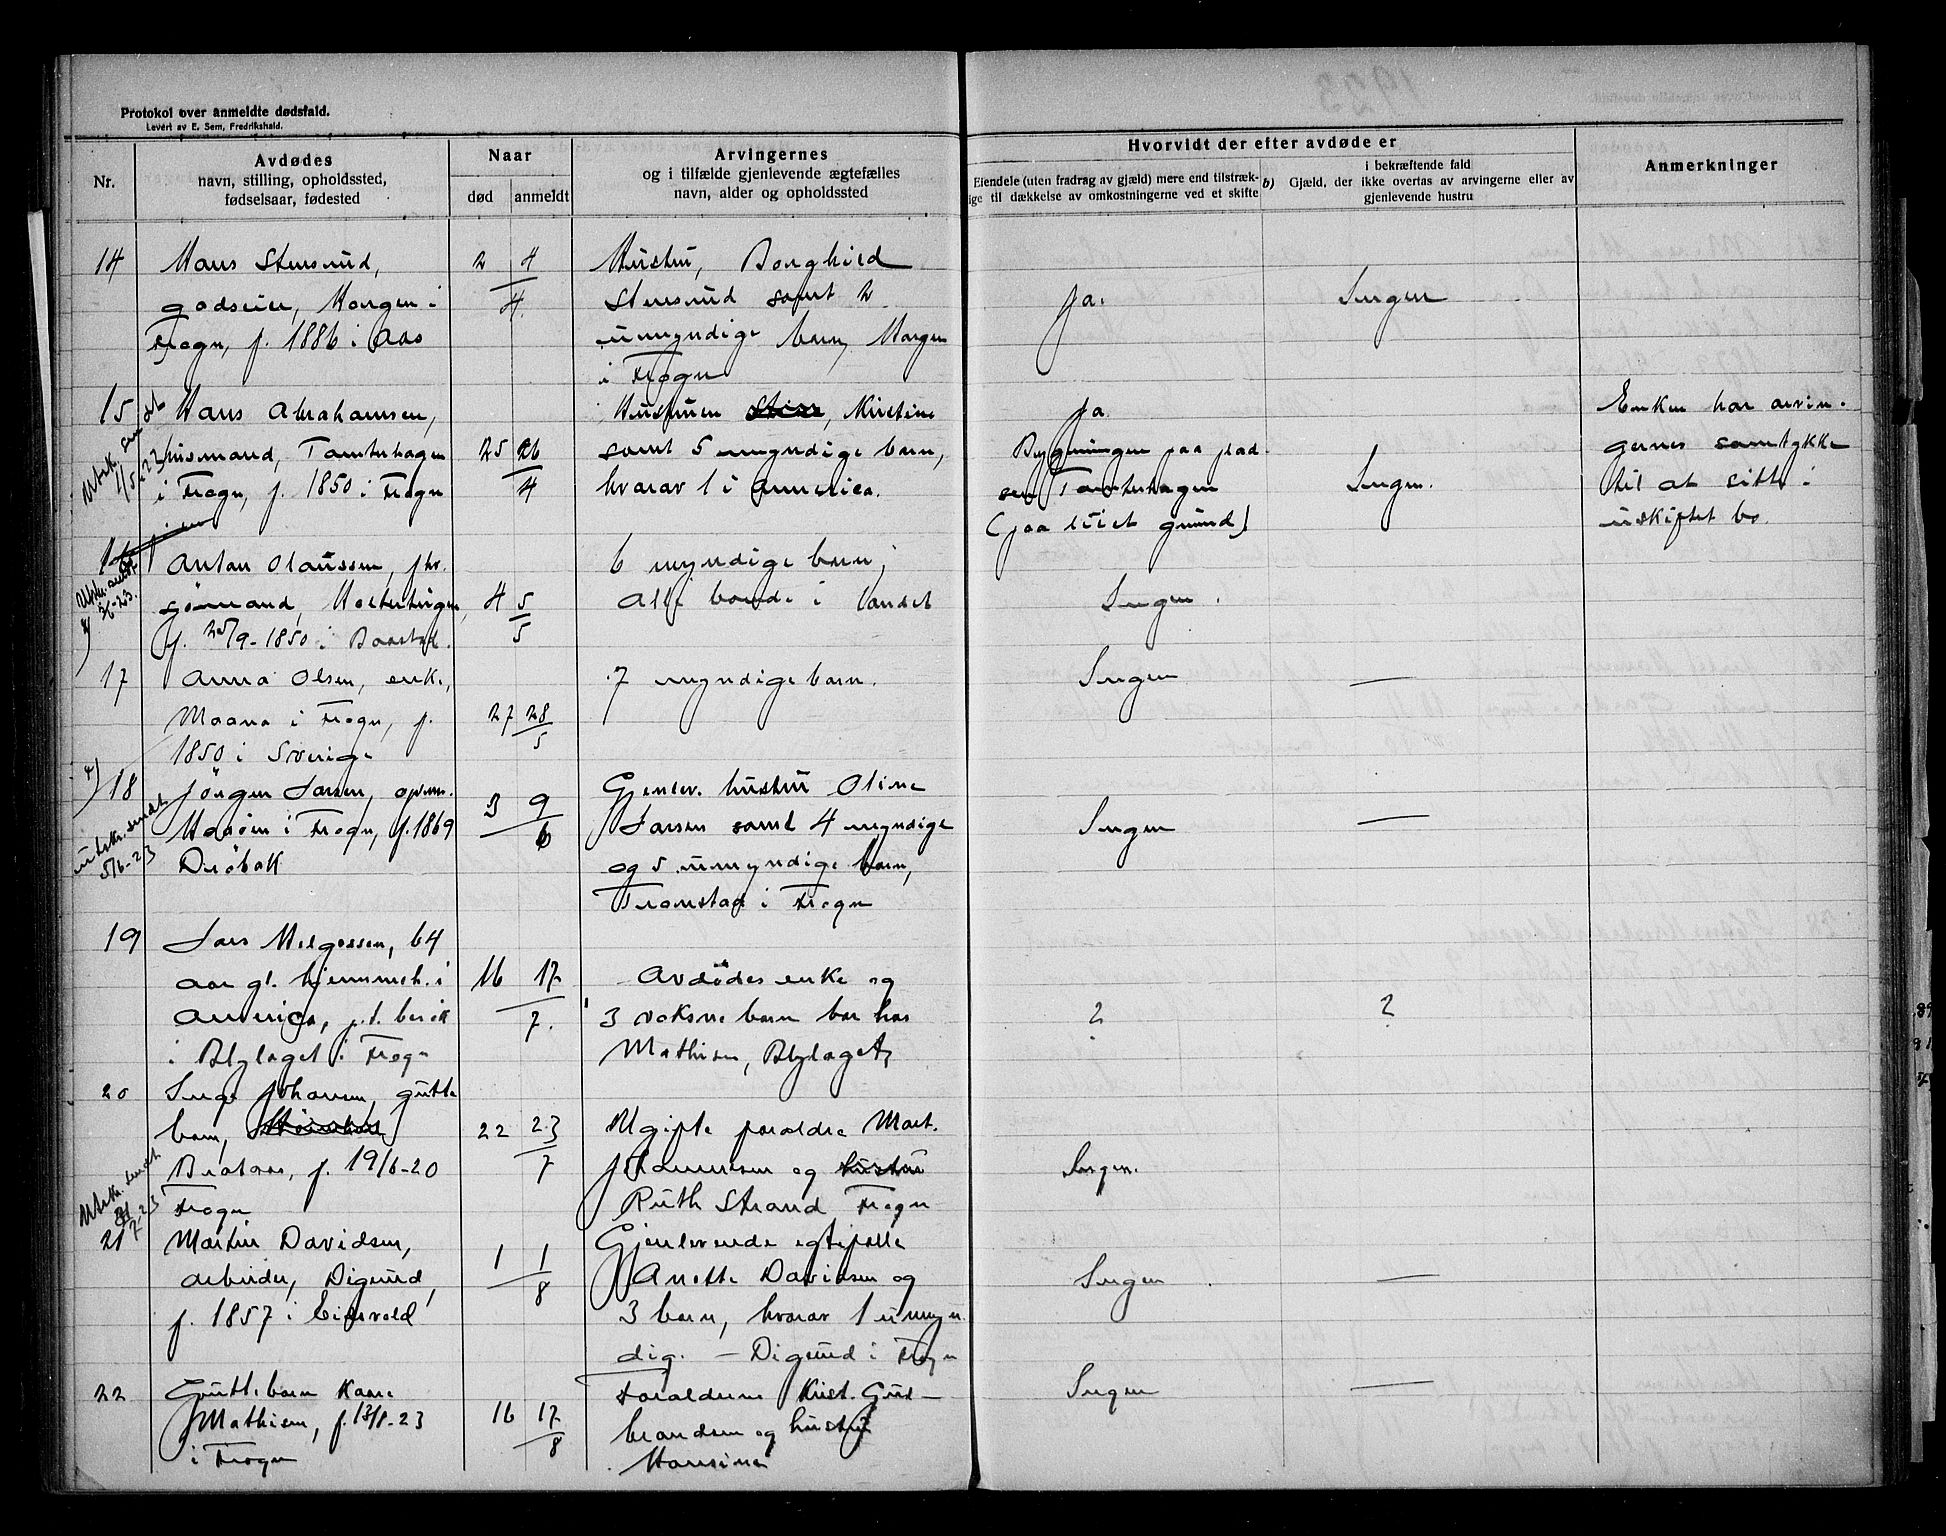 Protokol over anmeldte dødsfald.
Levert av E. Sem, Fredrikshald.
Nr.
Avdødes
navn, stilling, opholdssted,
fødselsaar, fødested
Naar
død
anmeldt
Arvingernes
og i tilfælde gjenlevende ægtefælles
navn, alder og opholdssted
Hvorvidt der efter avdøde er
Eiendele (uten fradrag av gjæld) mere end tilstræk-
ige til dækkelse av omkostningerne ved et skifte
b) Gjæld, der
i bekræftende fald
ikke overtas av arvingerne eller av
gjenlevende hustru
Anmerkninger
14
Hans Stensrud,
godseier, Horgen i
Frogn, f. 1886 i Aas
2 4/4.
Hustru, Borghild
Stensrud samt 2
umyndige barn, Horgen
i Frogn
Ja.
Ingen
15
Utsk. sendt
1/5 22
Hans Abrahamsen,
husmand, Tomterhagen
i Frogn, f. 1850 i Frogn
25 26/4
Hustruen Kristine
samt 5 myndige barn,
hvorav 1 i Amerika.
Ja.
Bygningen paa plad-
sen Tomterhagen
(paa leiet grund)
Ingen.
Enken har arvin-
gernes samtykke
til at sitte i
uskiftet bo.
16
Anton Olaussen, fhv.
sjömand,
f. 25/9-1850 i Baastad.
4 5/5
6 myndige barn,
alle boende i landet
Ingen.
17
Anna Olsen, enke,
Maana i Frogn, f.
1850 i Sverige
27 28/5
7 myndige barn.
Ingen
—
18
utskr. sendt
5/6-23
Jörgen Larsen,
Haaöen i Frogn, f. 1869
Dröbak
3 9/6
Gjenlev. hustru Oline
Larsen samt 4 myndige
og 5 umyndige barn,
i Frogn
Ingen
—
19
Lars Helgesen, 64
aar gl. hjemmeh. i
Amerika, p.t. besök
i Blylaget i Frogn
16 17/7.
Avdödes enke og
3 voksne barn bor hos
Mathisen, Blylaget,
?
?
20
Inge Johansen, gutte
barn,
Brataas, f. 19/6-20
Frogn
22 23/7
Ugifte foraldre Mart.
Johannesen og hustru
Ruth Strand Frogn
Ingen.
Utskr. sendt
7-23
21
Martin Davidsen,
arbeider, Digerud,
f. 1857 i Eidsvold
1 1/8
Gjenlevende egtefelle
Anette Davidsen og
3 barn, hvorav 1 umyn
dig. — Digerud i Frogn
Ingen
—
22
Guttebarn Kaare
Mathisen, f. 13/8-23
i Frogn
16 17/8
Foraldrene Krist. Gud-
brandsen og hustru
Hansine
Ingen
—